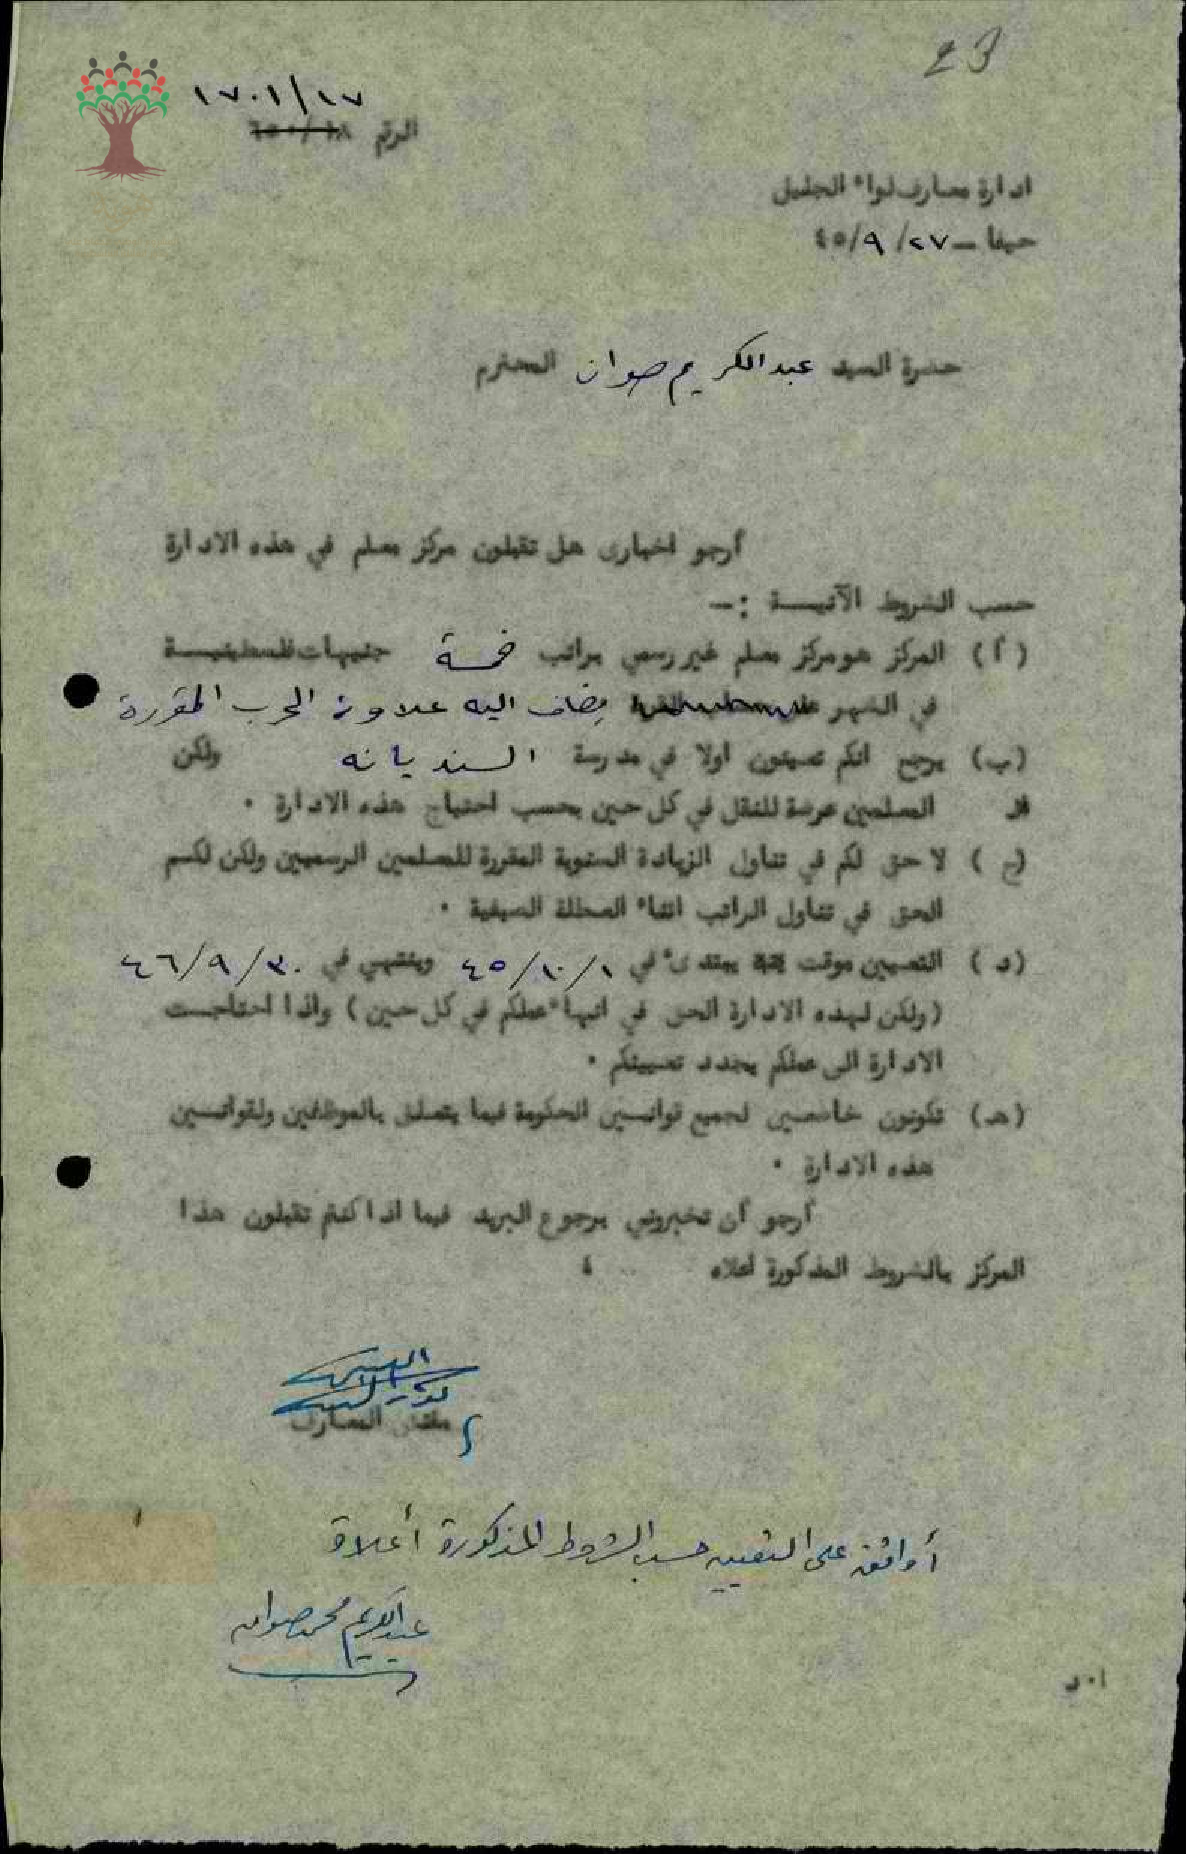 23
١٧٠١/١٧
الرقم
ادارة معارف لواء الجليل
حيفا – ٢٧/ ٩/ ٤٥
حضرة السيد عبد الكريم صوان المحترم
أرجو اخباري هل تقبلون مركز معلم في هذه الادارة
حسب الشروط الآتيـــة :–
(أ) المركز هو مركز معلم غير رسمي براتب خمسة جنيهات فلسطينيــة
في الشهر يضاف اليه علاوة الحرب المقررة
(ب) يرجح انكم تعينون اولا في مدرسة السنديانه ولكن
المعلمين عرضة للنقل في كل حين بحسب احتياج هذه الادارة ٠
(ج) لا حق لكم في تناول الزيادة السنوية المقررة للمعلمين الرسميين ولكن لكــم
الحق في تناول الراتب اثناء العطلة الصيفية ٠
(د) التعيين موقت يبتدىء في ١/ ١٠/ ٤٥ وينتهي في ٣٠/ ٩/ ٤٦
(ولكن لهذه الادارة الحق في انهاء عملكم في كل حين) واذا احتاجــت
الادارة الى عملكم يجدد تعيينكم ٠
(هـ) تكونون خاضعــين لجميع قوانــين الحكومة فيما يتعلق بالموظفين ولقوانــين
هذه الادارة ٠
أرجو أن تخبروني برجوع البريد فيما اذا كنتم تقبلون هذا
المركز بالشروط المذكورة اعلاه
مفتش المعارف
أوافق على التعيين حسب الشروط المذكورة أعلاة
عبد الكريم محمد صوان
ا٠د